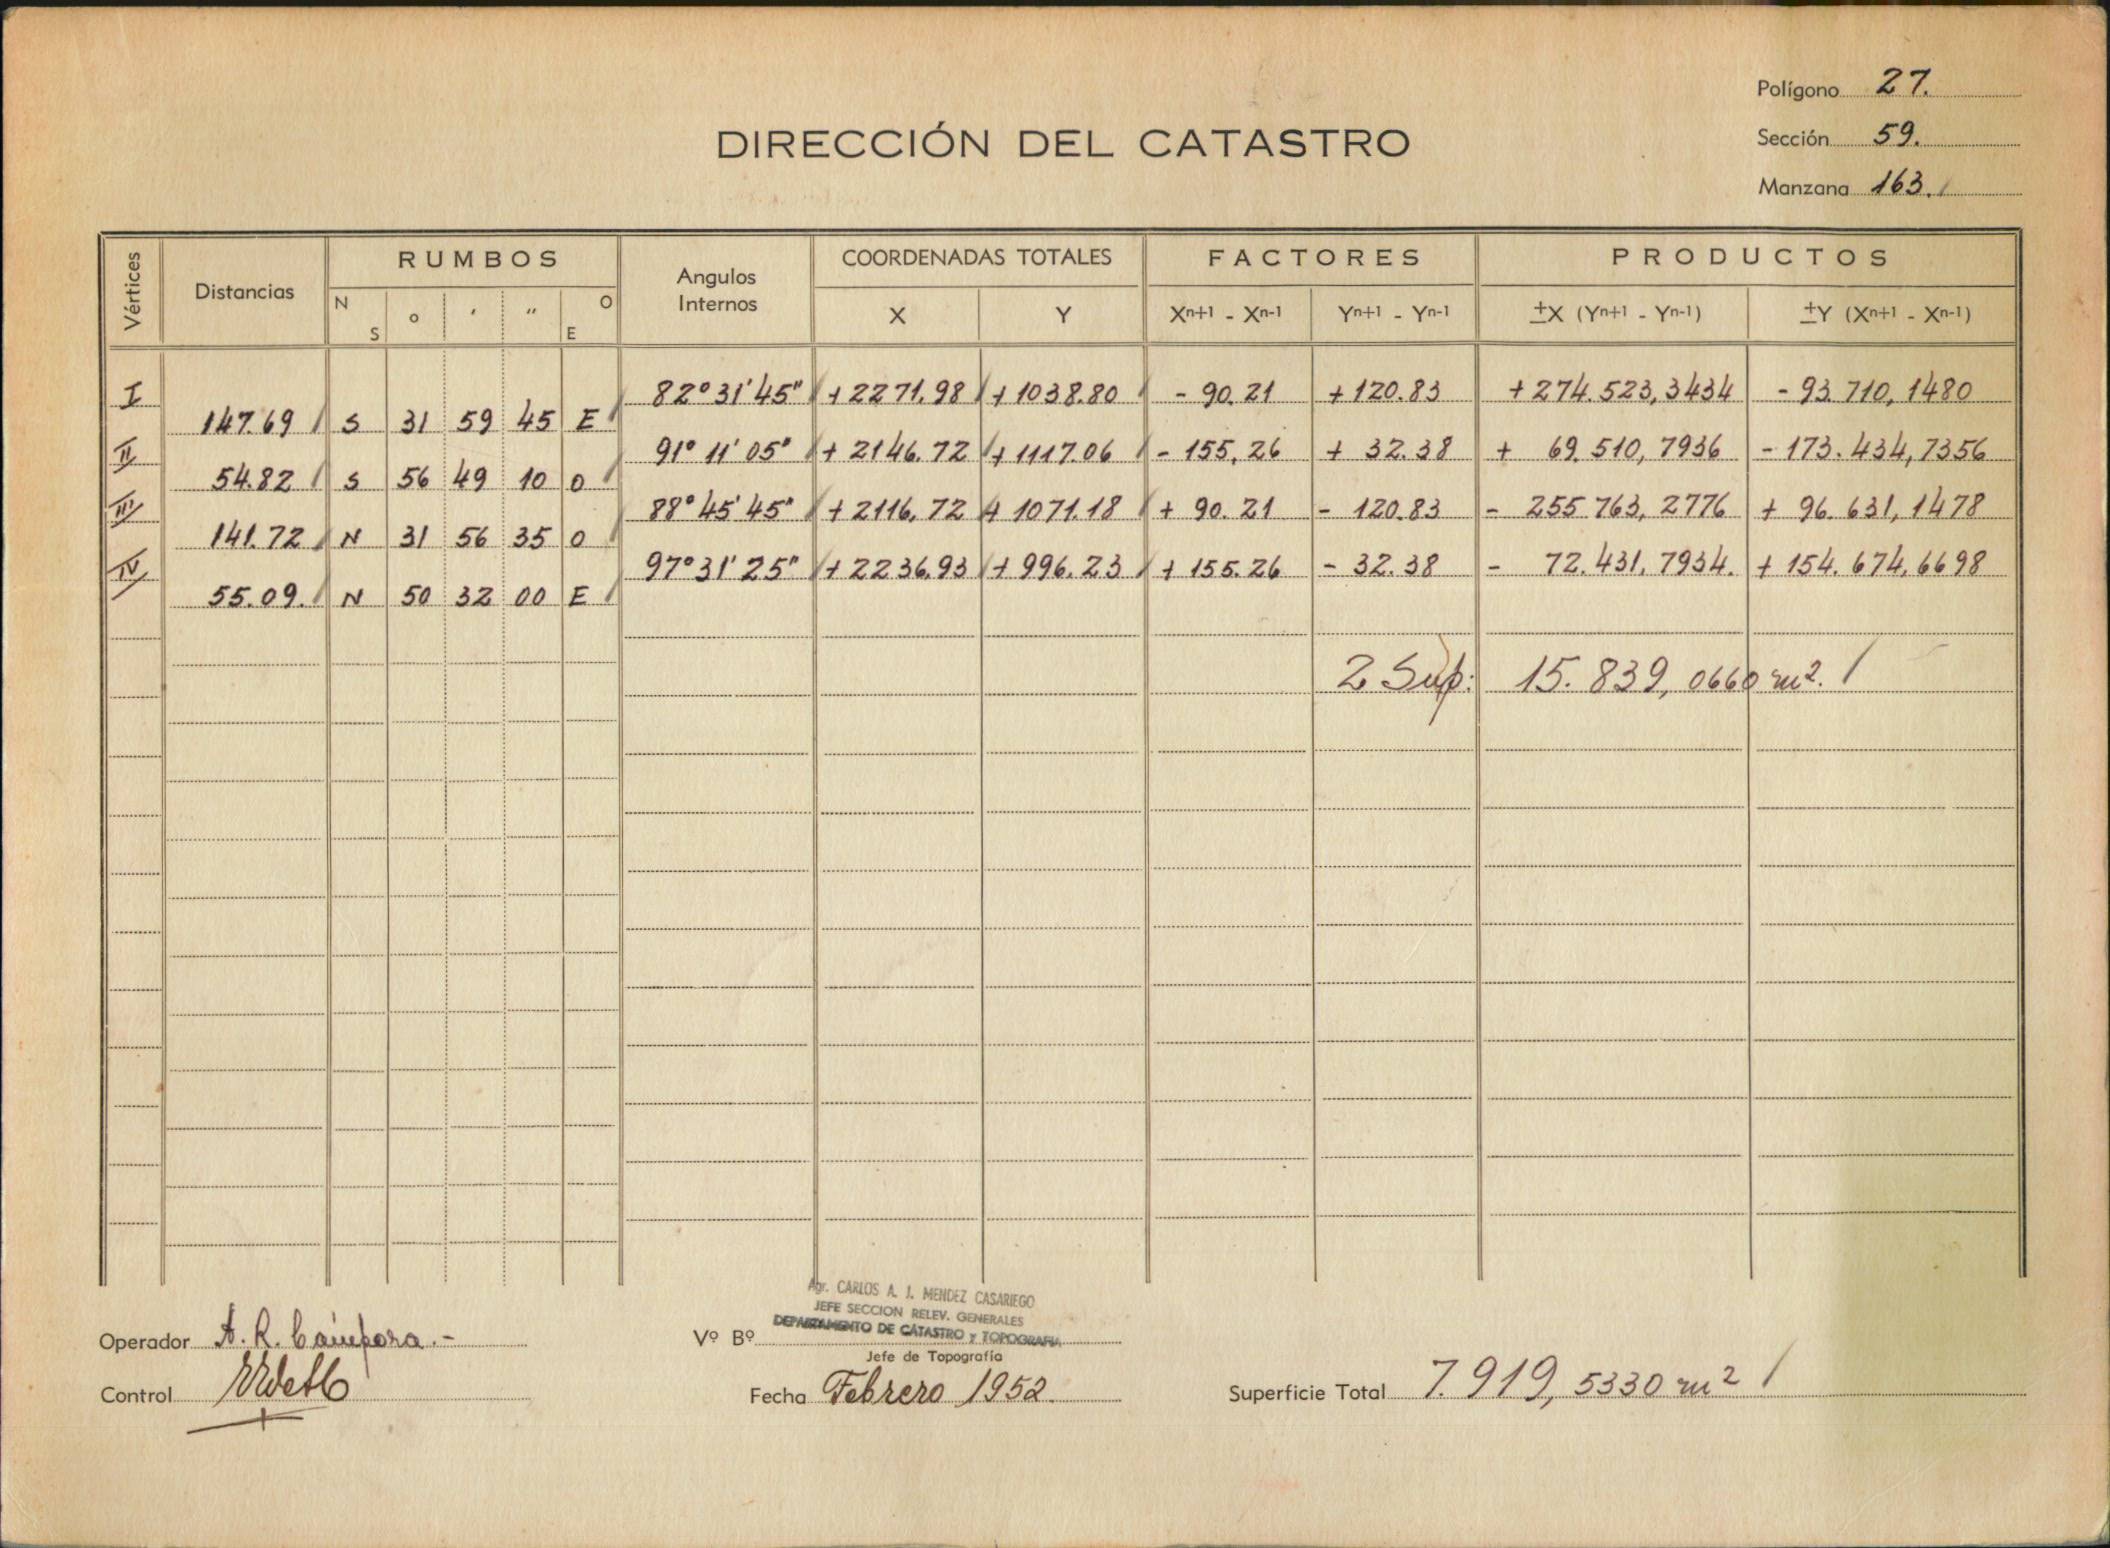 Polígono 27.
Sección 59.
Manzana 163.
DIRECCIÓN DEL CATASTRO
Vértices Distancias RUMBOS Angulos Internos COORDENADAS TOTALES FACTORES PRODUCTOS
N S ° ' " O E X Y Xn+1 - Xn-1 Yn+1 - Yn-1 ±X (Yn+1 - Yn-1) ±Y (Xn+1 - Xn-1)
I 82°31'45" +2271.98 +1038.80 - 90.21 +120.83 +274.523,3434 - 93.710,1480
147.69 S 31 59 45 E
II 91° 11' 05" + 2146.72 + 1117.06 - 155.26 + 32.38 + 69.510,7936 - 173.434,7356
54.82 S 56 49 10 O
III 88°45'45" + 2116.72 + 1071.18 + 90.21 - 120.83 - 255.763,2776 + 96.631,1478
141.72 N 31 56 35 O
IV 97°31'25" + 2236.93 + 996.23 + 155.26 - 32.38 - 72.431,7934. + 154.674,6698
55.09. N 50 32 00 E
2 Sup: 15.839,0660 m².
Agr. CARLOS A. J. MENDEZ CASARIEGO
JEFE SECCION RELEV. GENERALES
DEPARTAMENTO DE CATASTRO y TOPOGRAFIA
Operador A. R. Cámpora.-
Vº Bº
Jefe de Topografía
Control
Fecha Febrero 1952.
Superficie Total 7.919,5330 m²